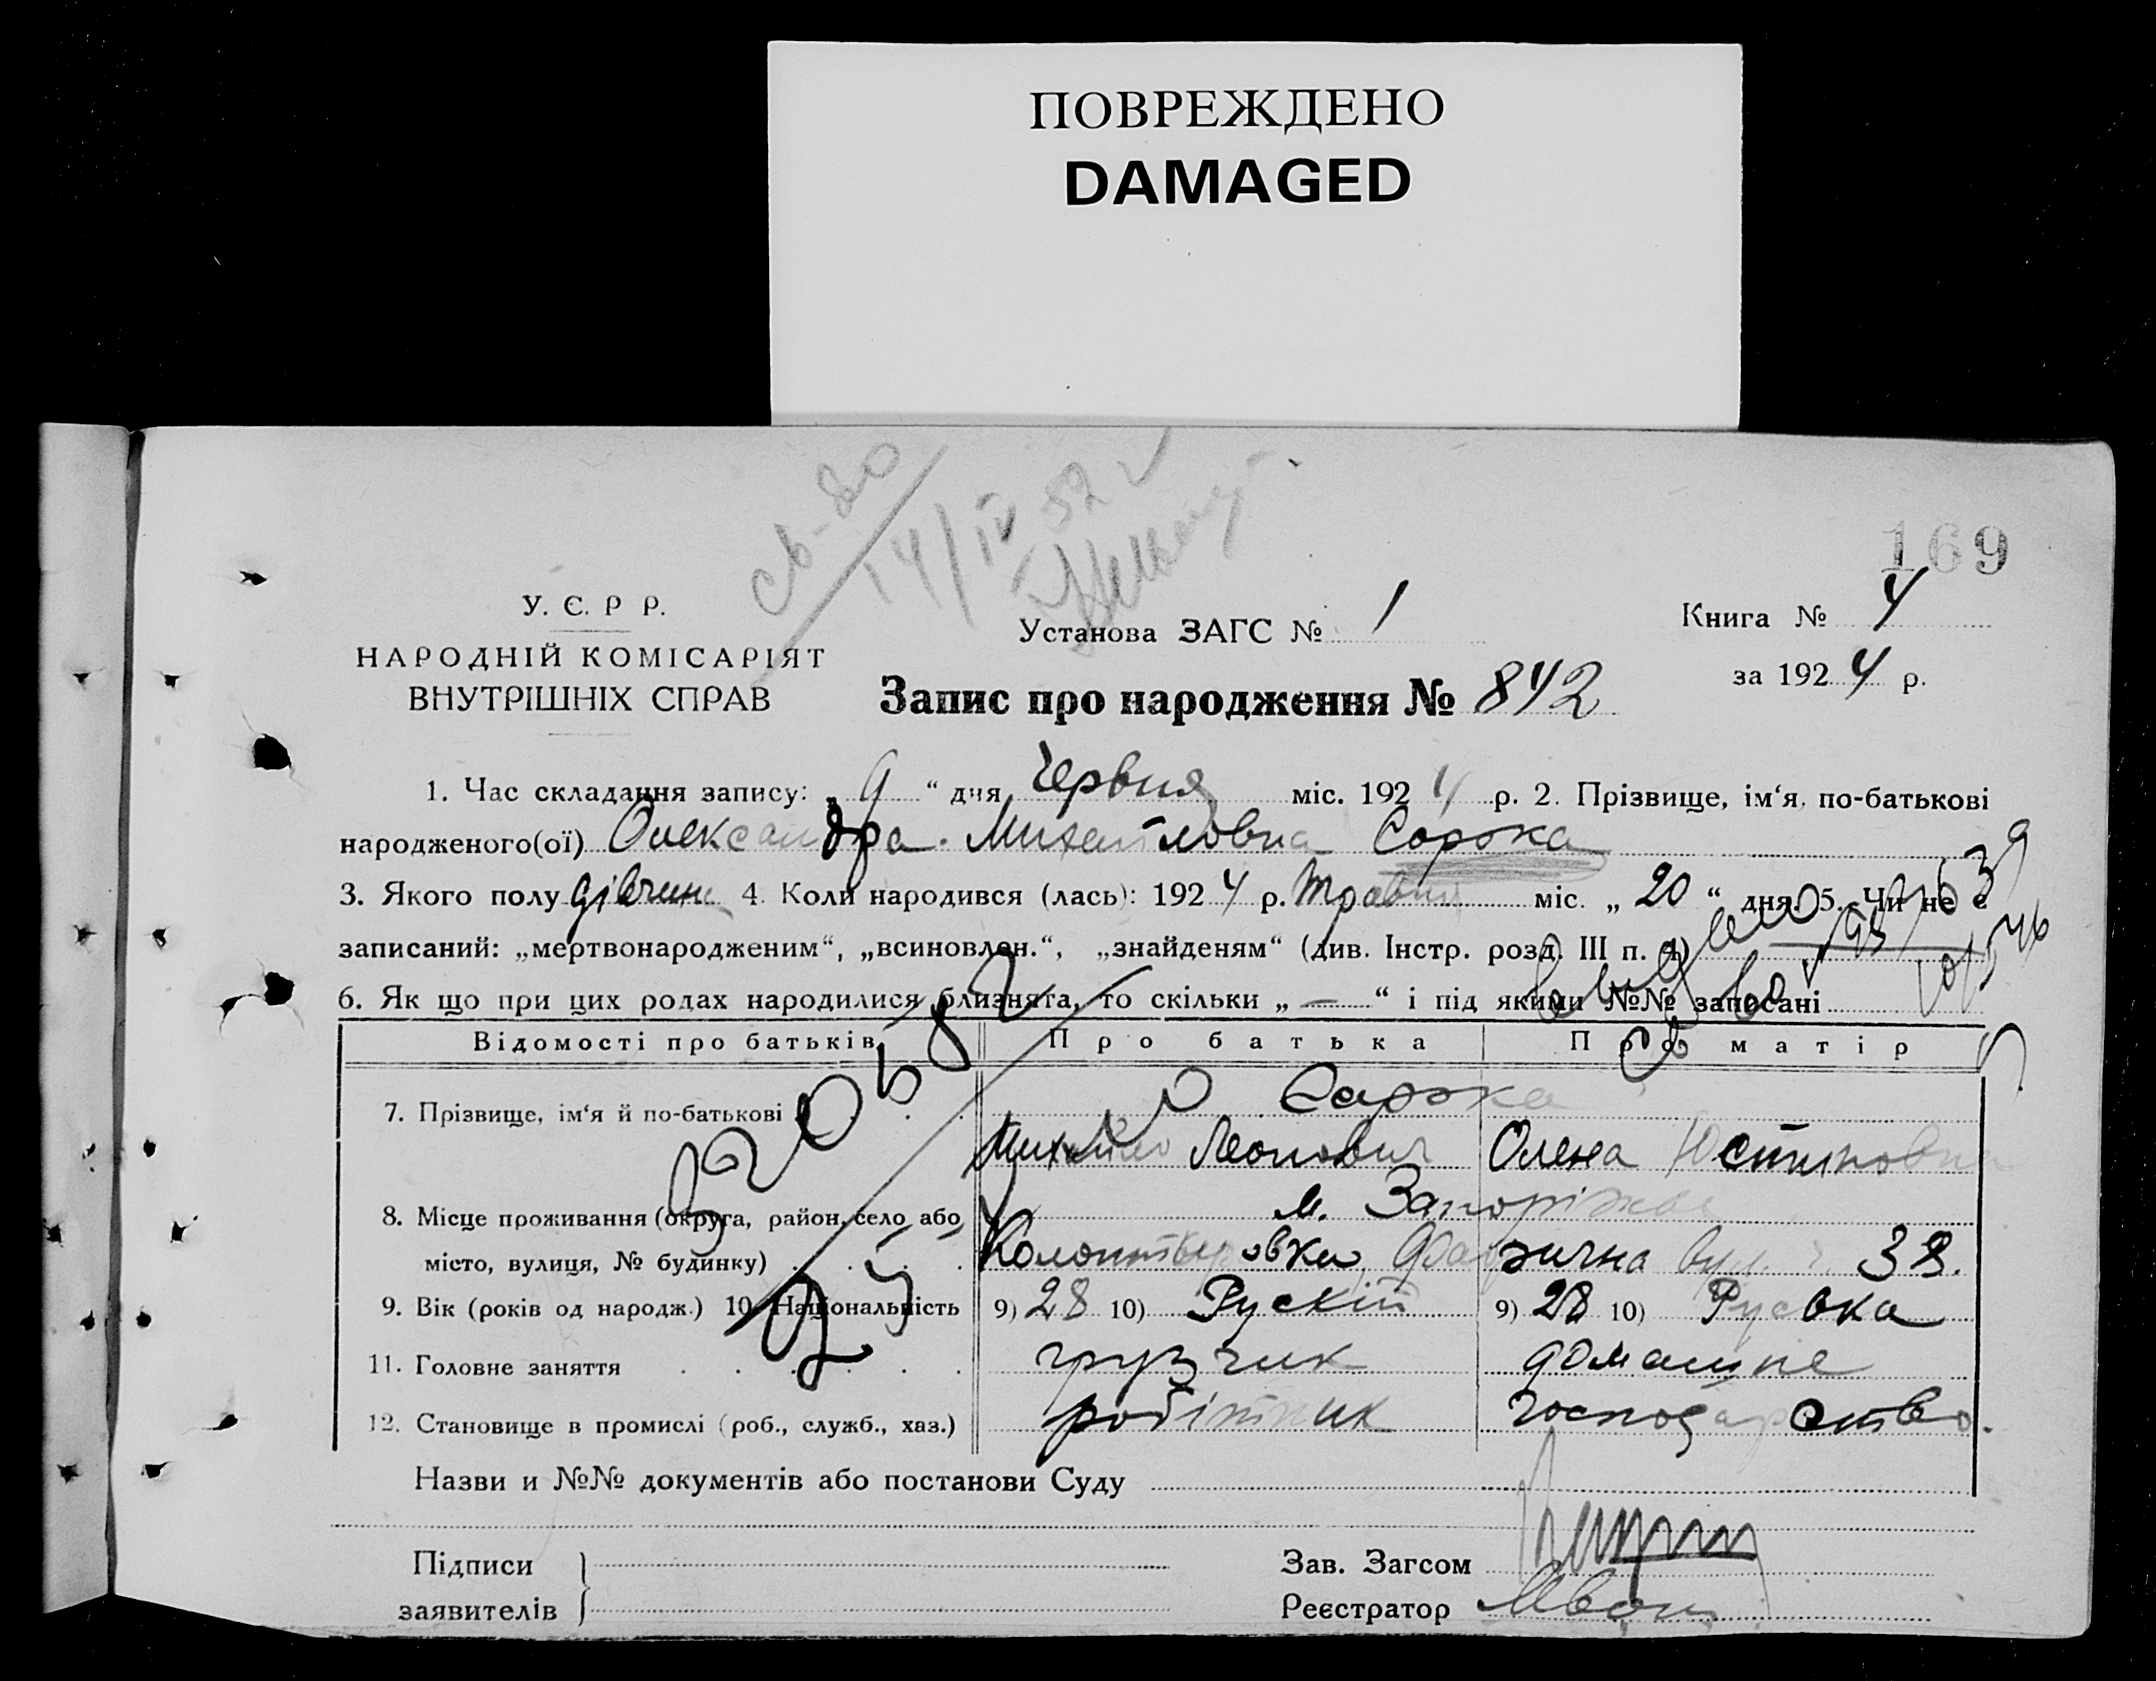 ПОВРЕЖДЕНО
DAMAGED
169
14/IV 52
У. Є. Р Р.
НАРОДНІЙ КОМІСАРІЯТ
ВНУТРІШНІХ СПРАВ
Установа ЗАГС № 1
Книга № 4
за 1924 р.
Запис про народження № 842
1. Час складання запису: „ 9 “ дня Червня міс. 1924 р. 2. Прізвище, ім‘я, по-батькові
народженого(ої) Олександра Михайловна Сорока
3. Якого полу дівчина 4. Коли народився (лась): 1924 р. Травня міс. „ 20 “ дня. 5. Чи не є
записаний: „мертвонародженим“, „всиновлен.“, „знайденям“ (див. Інстр. розд. III п. 4)
6. Як що при цих родах народилися близнята, то скільки „ — “ і під якими №№ записані
Відомості про батьків Про батька Про матір
7. Прізвище, ім‘я й по-батькові Сорока
Михайло Леонович Олена Юстиновна
8. Місце проживання (округа, район, село або м. Запоріжжє
місто, вулиця, № будинку) 38.
9. Вік (років од народж.) 10. Національність 9) 28 10) Рускій 9) 28 10) Руська
11. Головне заняття грузчик домашнє
12. Становище в промислі (роб., служб., хаз.) робітник господарство.
Назви и №№ документів або постанови Суду
Підписи
заявителів
Зав. Загсом
Реєстратор